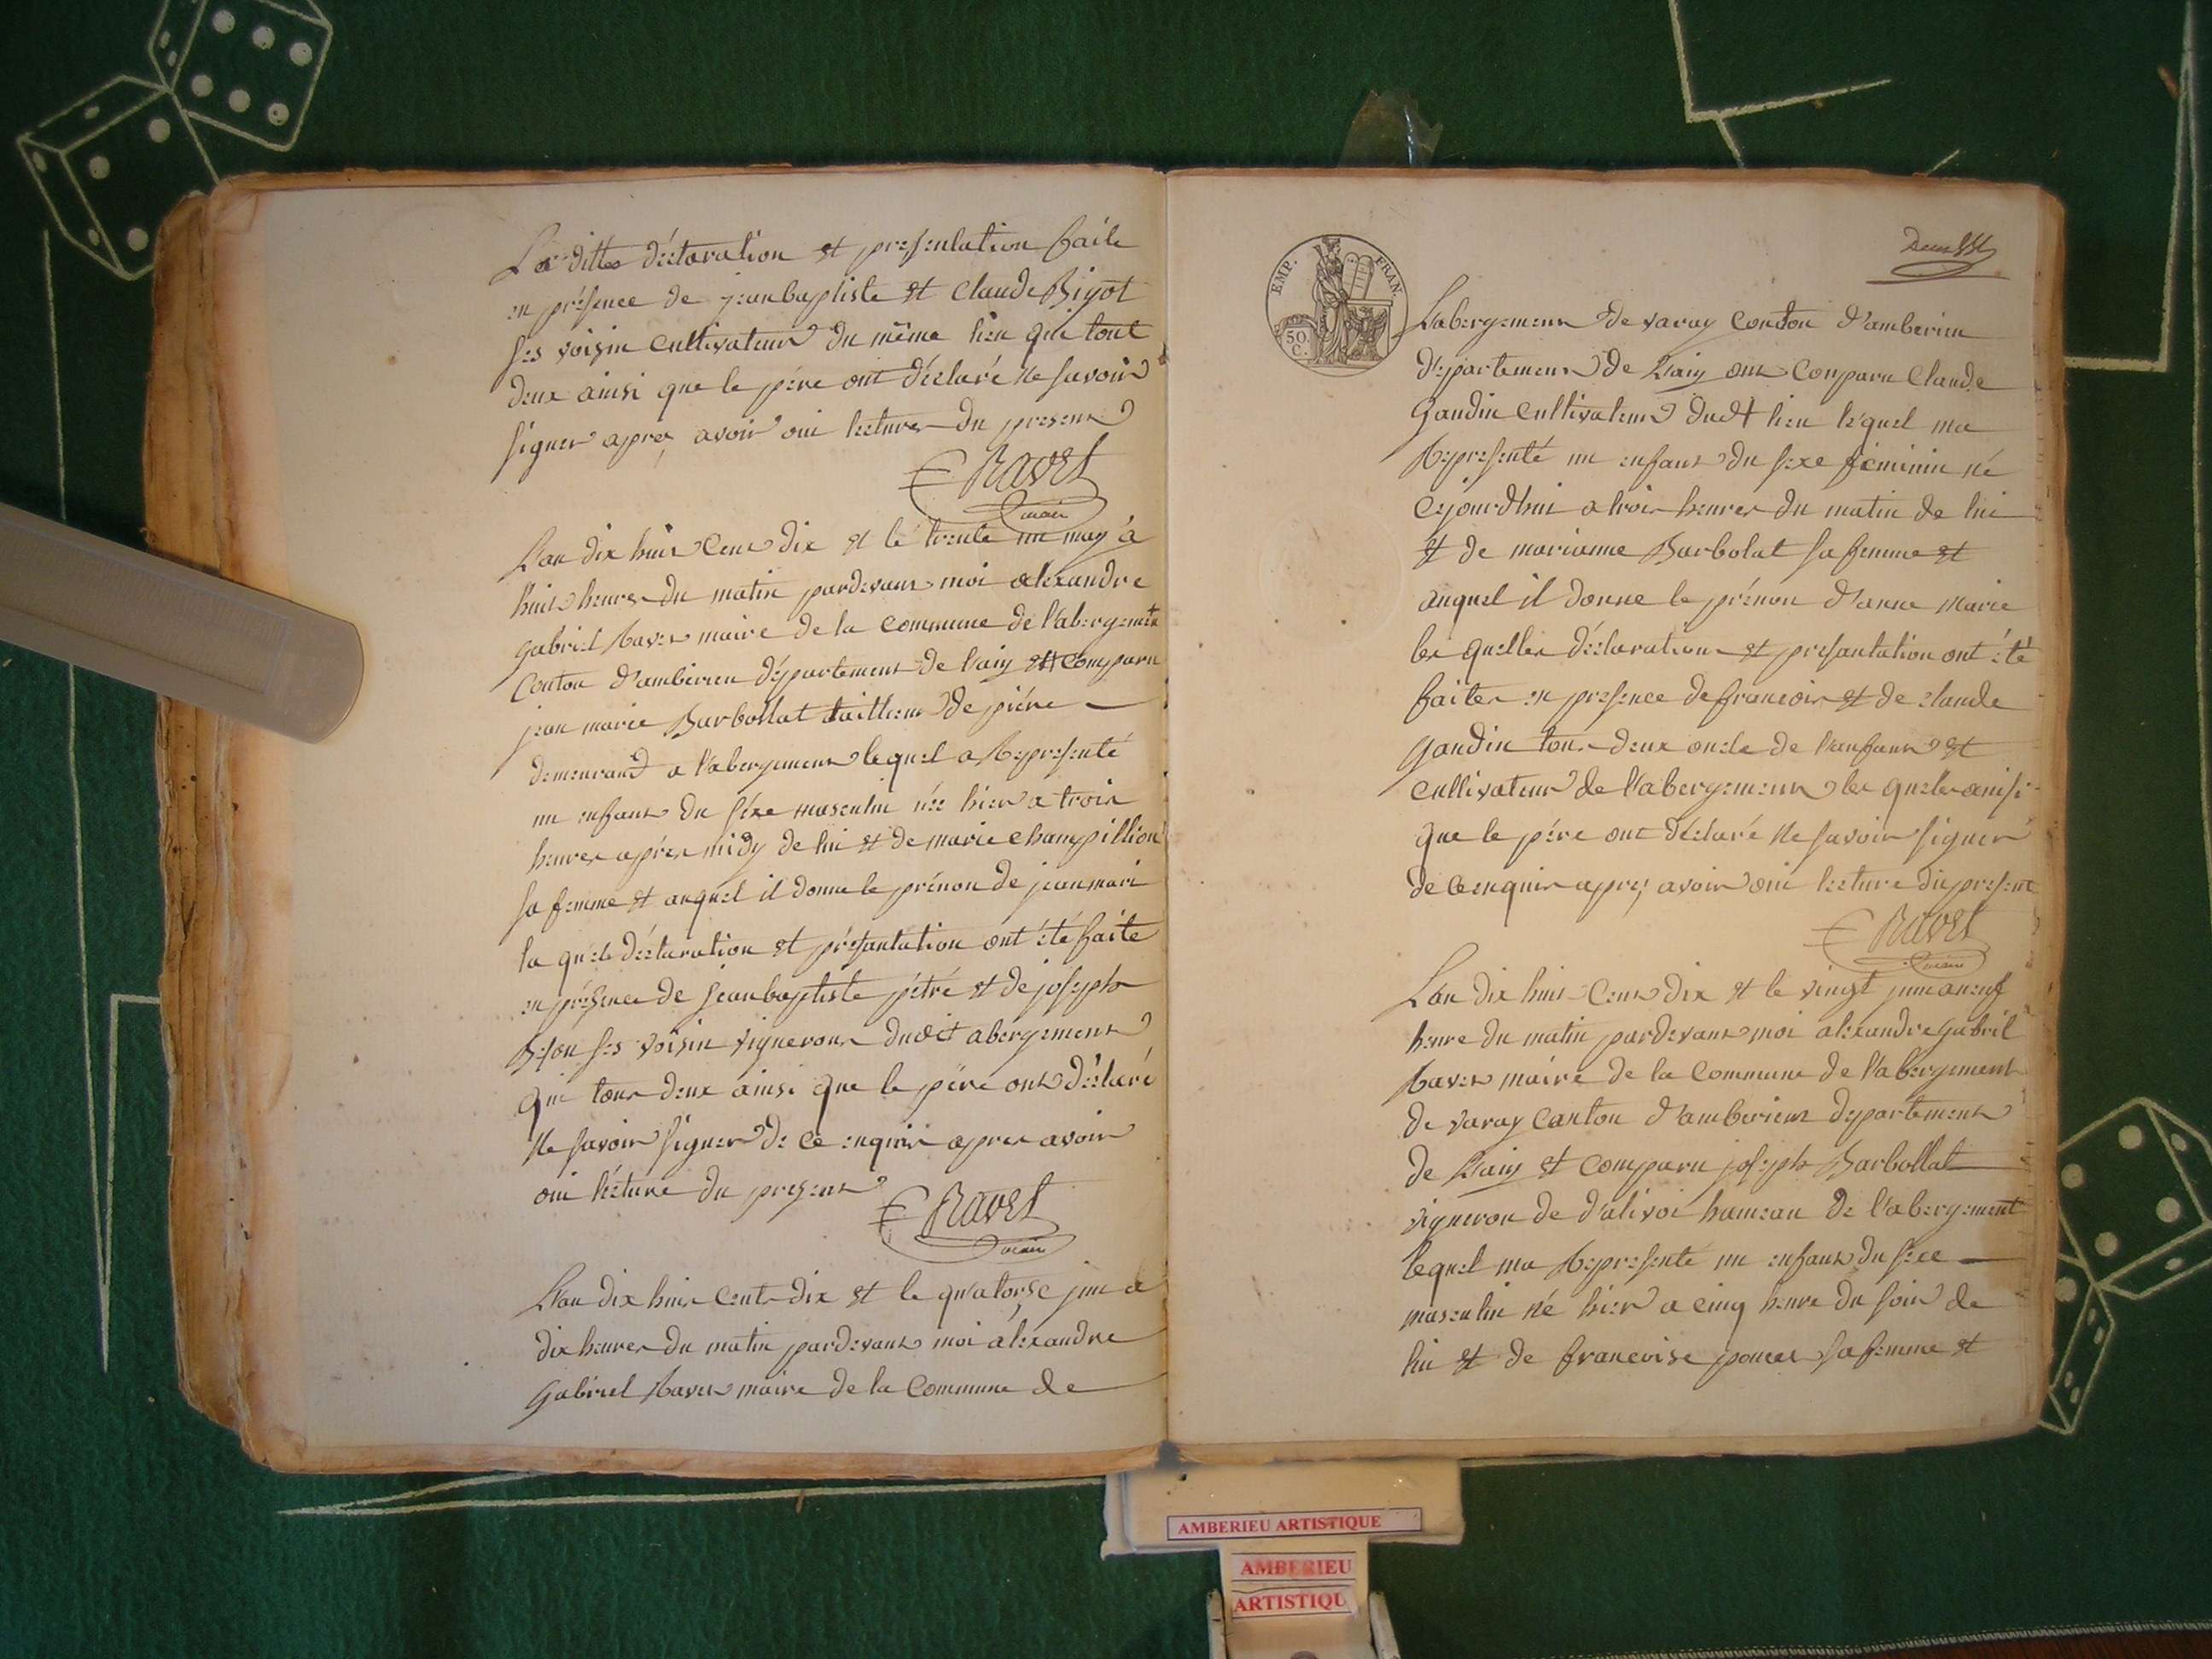 La ditte déclaration et presentation faite
en présence de jean baptiste et Claude Bigot
ses voisin cultivateur du même lieu qui tout
deux ainsi que le père ont déclaré ne savoir
signer apres avoir oui lecture du present
Ravet
maire
L'an dix huit cent dix et le trente un may à
huit heures du matin pardevant moi alexandre
gabriel Ravet maire de la commune de l'abergement
Conton d'amberieu département de l'ain est comparu
jean marie Barbollat tailleur de pière
demeurant a l'abergement lequel a Représenté
un enfant du séxe masculin née hier a trois
heures après midy de lui et de marie Champillion
sa femme et auquel il donne le prénon de jean mari
la quele déclaration et présantation ont été faite
en présence de jean baptiste pétré et de joseph
ses voisin vigneron dudit abergement
qui tous deux ainsi que le père ont déclaré
ne savoir signer de ce enquis apres avoir
oui lécture du present
Ravet
maire
L'an dix huit cent dix et le quatorse juin a
dix heures du matin pardevant moi aléxandre
Gabriel Ravet maire de la Commune de
EMP. FRAN.
50 C.
L'abergement de varay Conton d'amberieu
département de L'ain ont Comparu Claude
Gaudin cultivateur dudt lieu léquel ma
Représenté un enfant du sexe féminin né
cejourdhui a trois heures du matin de lui
et de marianne Barbolat sa femme et
auquel il donne le prénon d'anne Marie
les quelles déclaration et présantation ont été
faites en présence de francois et de claude
Gaudin tous deux oncle de l'anfant et
cultivateur de l'abergement les queles ainsi
que le père ont déclaré ne savoir signer
de ce enquis apres avoir oui lecture du présent
Ravet
maire
L'an dix huit cent dix et le vingt juin a neuf
heure du matin pardevant moi aléxandre gabriel
Ravet maire de la Commune de l'abergement
de varay Canton d'amberieux département
de L'ain et comparu joseph Barbollat
vigneron de d'alivoi hameau de l'abergement
lequel ma Représenté un enfant du sexe
masculin né hier a cinq heure du soir de
lui et de francoise poncet sa femme et
AMBERIEU ARTISTIQUE
AMBERIEU
ARTISTIQU